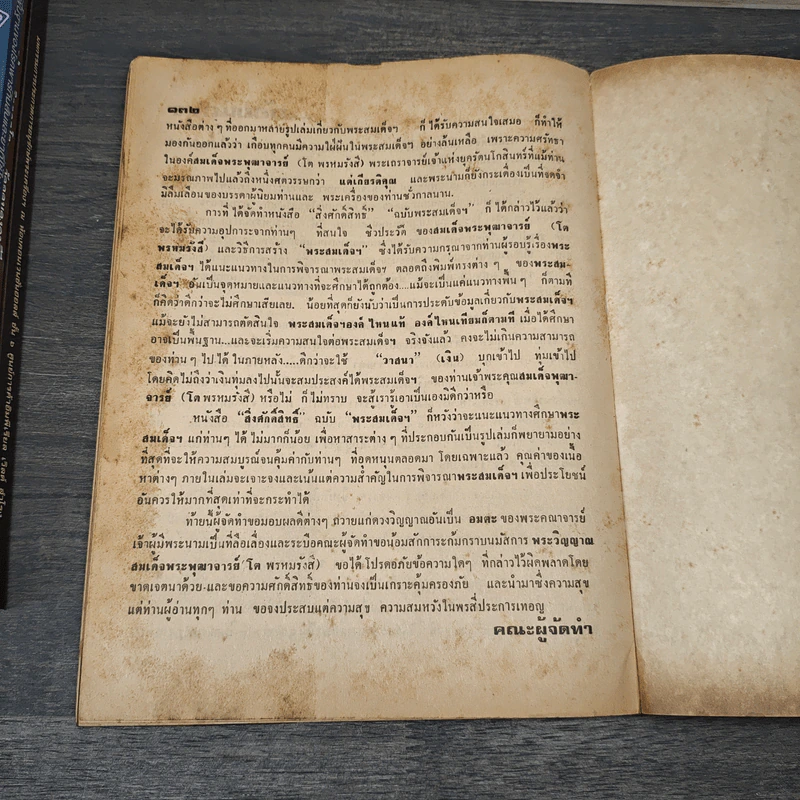 ๑๓๒
หนังสือต่าง ๆ ที่ออกมาหลายรูปเล่มเกี่ยวกับพระสมเด็จฯ ก็ ได้รับความสนใจเสมอ ก็ทำให้
มองกันออกแล้วว่า เกือบทุกคนมีความใฝ่ฝันในพระสมเด็จฯ อย่างล้นเหลือ เพราะความศรัทธา
ในองค์สมเด็จพระพุฒาจารย์ (โต พรหมรังสี) พระเถราจารย์เจ้าแห่งยุครัตนโกสินทร์ที่แม้ท่าน
จะมรณภาพไปแล้วถึงหนึ่งศตวรรษกว่า แต่เกียรติคุณ และพระนามก็ยังกระเดื่องเป็นที่จดจำ
มิลืมเลือนของบรรดาผู้นิยมท่านและ พระเครื่องของท่านชั่วกาลนาน.
การที่ ได้จัดทำหนังสือ “สิ่งศักดิ์สิทธิ์” “ฉบับพระสมเด็จฯ” ก็ ได้กล่าวไว้แล้วว่า
จะได้รับความอุปการะจากท่านๆ ที่สนใจ ชีวประวัติ ของสมเด็จพระพุฒาจารย์ (โต
พรหมรังสี) และวิธีการสร้าง “พระสมเด็จฯ” ซึ่งได้รับความกรุณาจากท่านผู้รอบรู้เรื่องพระ
สมเด็จฯ ได้แนะแนวทางในการพิจารณาพระสมเด็จฯ ตลอดถึงพิมพ์ทรงต่าง ๆ ของพระสม-
เด็จฯ อันเป็นจุดหมายและแนวทางที่จะศึกษาได้ถูกต้อง....แม้จะเป็นแค่แนวทางพื้น ๆ ก็ตามที
ก็คิดว่าดีกว่าจะไม่ศึกษาเสียเลย. น้อยที่สุดก็ยังนับว่าเป็นการประดับข้อมูลเกี่ยวกับพระสมเด็จฯ
แม้จะยังไม่สามารถตัดสินใจ พระสมเด็จฯองค์ ไหนแท้ องค์ ไหนเทียมก็ตามที เมื่อได้ศึกษา
อาจเป็นพื้นฐาน...และจะเริ่มความสนใจต่อพระสมเด็จฯ จริงจังแล้ว คงจะไม่เกินความสามารถ
ของท่าน ๆ ไป ได้ ในภายหลัง.....ดีกว่าจะใช้ “วาสนา” (เงิน) บุกเข้าไป ทุ่มเข้าไป
โดยคิดไม่ถึงว่าเงินทุ่มลงไปนั้นจะสมประสงค์ได้พระสมเด็จฯ ของท่านเจ้าพระคุณสมเด็จพุฒา-
จารย์ (โต พรหมรังสี) หรือไม่ ก็ ไม่ทราบ จะสู้เรารู้เอาเป็นเองมิดีกว่าหรือ
หนังสือ “สิ่งศักดิ์สิทธิ์” ฉบับ “พระสมเด็จฯ” ก็หวังว่าจะแนะแนวทางศึกษาพระ
สมเด็จฯ แก่ท่านๆ ได้ ไม่มากก็น้อย เพื่อหาสาระต่าง ๆ ที่ประกอบกันเป็นรูปเล่มก็พยายามอย่าง
ที่สุดที่จะให้ความสมบูรณ์จนคุ้มค่ากับท่านๆ ที่อุดหนุนตลอดมา โดยเฉพาะแล้ว คุณค่าของเนื้อ
หาต่างๆ ภายในเล่มจะเจาะจงและเน้นแต่ความสำคัญในการพิจารณาพระสมเด็จฯ เพื่อประโยชน์
อันควรให้มากที่สุดเท่าที่จะกระทำได้
ท้ายนี้ผู้จัดทำขอมอบผลดีต่างๆ ถวายแก่ดวงวิญญาณอันเป็น อมตะ ของพระคณาจารย์
เจ้าผู้มีพระนามเป็นที่ลือเลื่องและระบือคณะผู้จัดทำขอน้อมสักการะก้มกราบนมัสการ พระวิญญาณ
สมเด็จพระพุฒาจารย์ โต พรหมรังสี) ขอได้โปรดอภัยข้อความใดๆ ที่กล่าวไว้ผิดพลาดโดย
ขาดเจตนาด้วย-และขอความศักดิ์สิทธิ์ของท่านจงเป็นเกราะคุ้มครองภัย และนำมาซึ่งความสุข
แด่ท่านผู้อ่านทุกๆ ท่าน ขอจงประสบแต่ความสุข ความสมหวังในพรสี่ประการเทอญ
คณะผู้จัดทำ